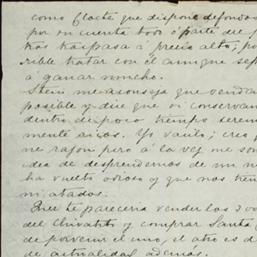 como Cloete que dispone de fondos
por su cuenta todo ó parte de
á precio alto; po
rible tratar con el aunque sep
á ganar mucho.
Stein me aconseja que venda
posible y dice que si conservan
dentro de poco tiempo serem
mente ricos. Yo vacilo; creo
ne razon pero á la vez me son
idea de desprendernos de un n
ha vuelto odioso y que nos tien
ni atados.
te pareceria vender las 300
del Chivatito y comprar Santa
de porvenir el uno, el otro es d
de actualidad